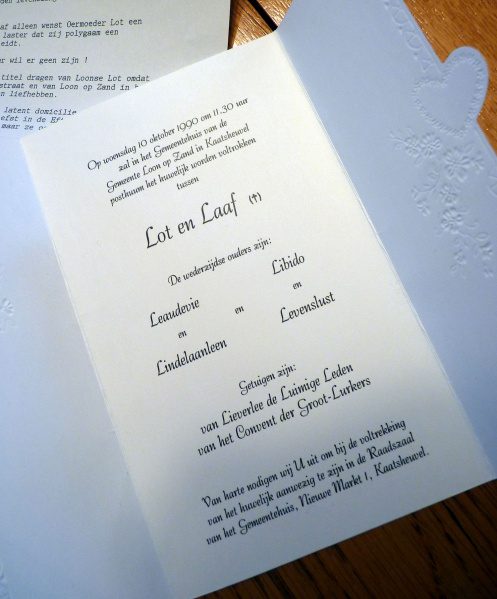 af alleen wenst Oermoeder Lot een
laster dat zij polygaam een
eidt.
r wil er geen zijn !
titel dragen van Loonse Lot omdat
straat en van Loon op Zand in h
n liefhebben.
latent domicilie
efst in de
maar ze
Op woensdag 10 oktober 1990 om 11.30 uur
zal in het Gemeentehuis van de
Gemeente Loon op Zand in Kaatsheuvel
posthuum het huwelijk worden voltrokken
tussen
Lot en Laaf (†)
De wederzijdse ouders zijn:
Leaudevie en Libido
en en
Lindelaanleen Levenslust
Getuigen zijn:
van Lieverlee de Luimige Leden
van het Convent der Groot-Lurkers
Van harte nodigen wij U uit om bij de voltrekking
van het huwelijk aanwezig te zijn in de Raadszaal
van het Gemeentehuis, Nieuwe Markt 1, Kaatsheuvel.